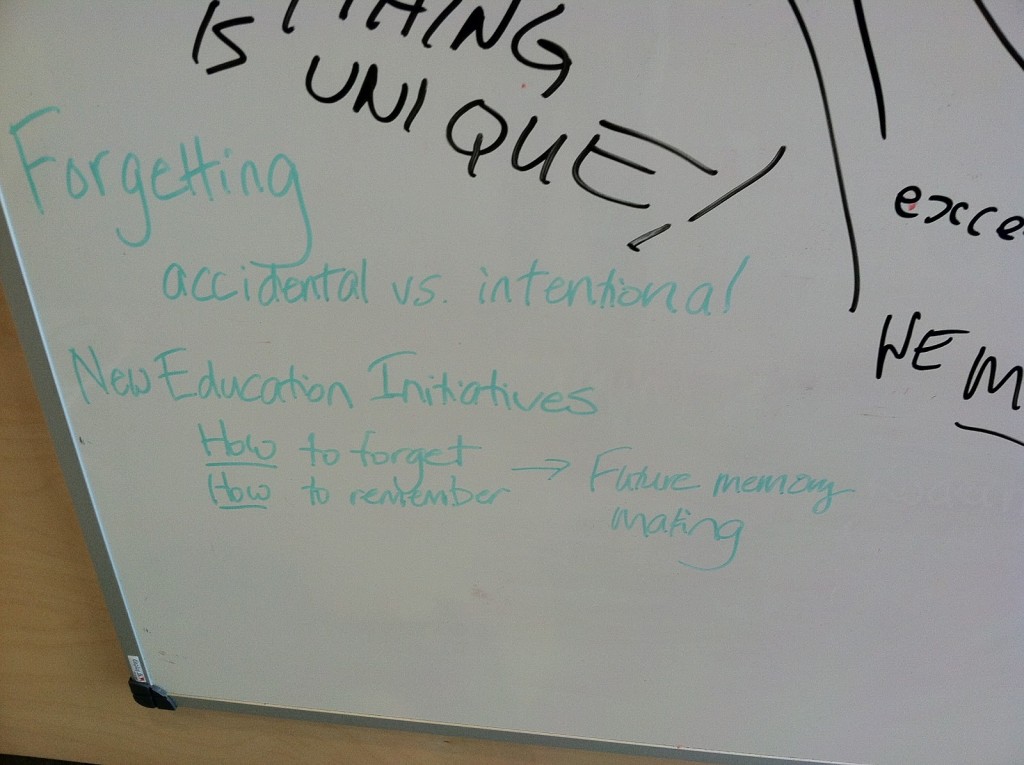 THING
IS UNIQUE!
Forgetting
accidental vs. intentional
New Education Initiatives
How to forget
How to remember
→ Future memory
making
exce
WE M